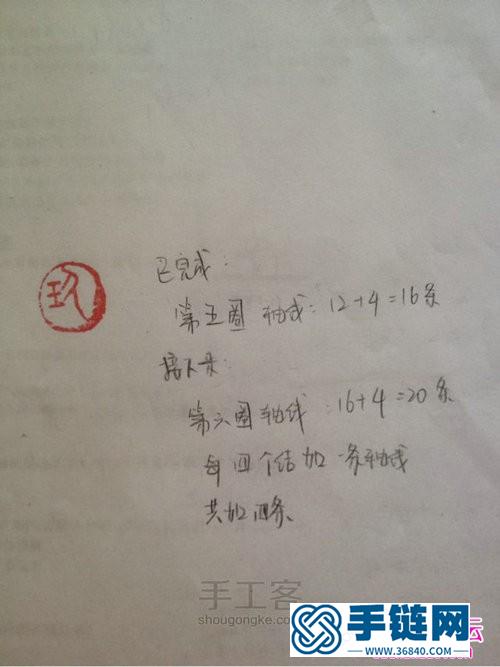 已完成：
玖
第五圈 轴线：12+4=16条
接下来：
第六圈轴线：16+4=20条
每四个结加一条轴线
共加四条
手工客
shougongke.com
手链网
www.36840.com
坛